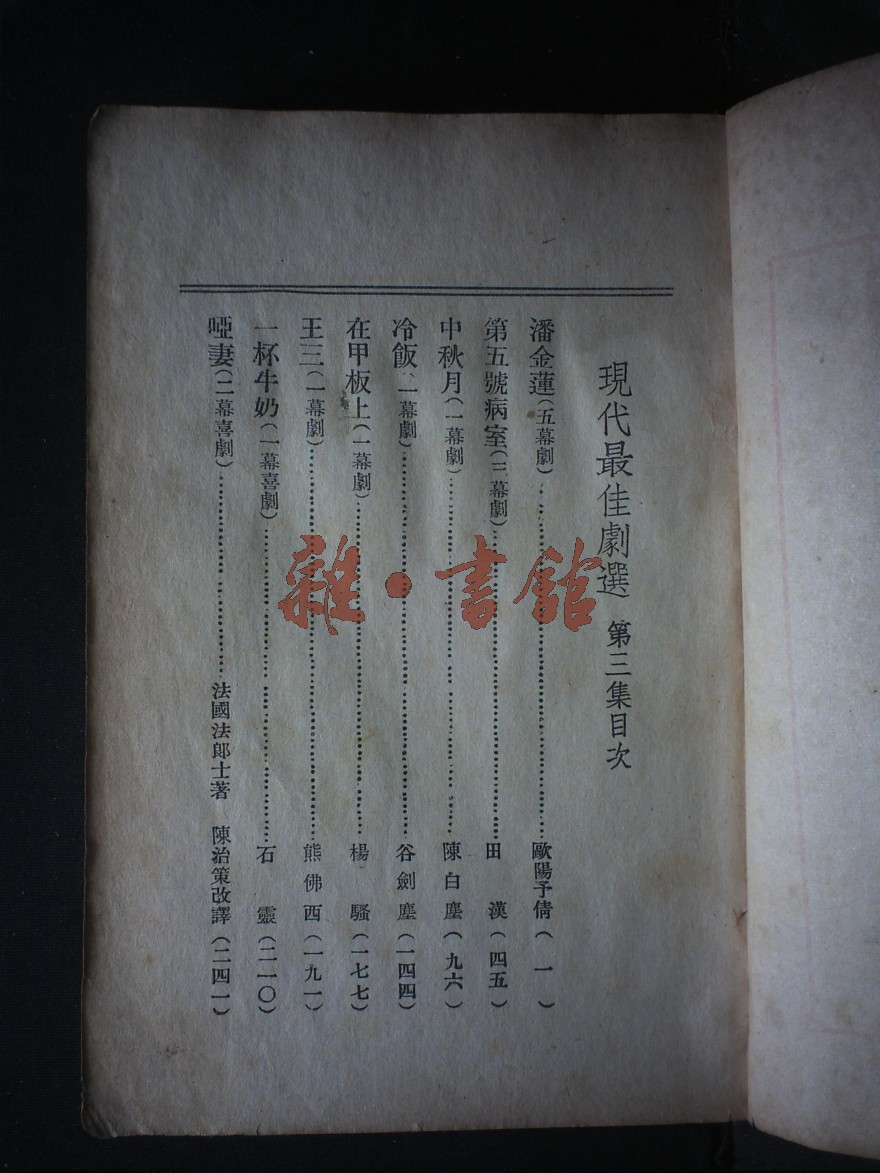 現代最佳劇選 第三集目次
潘金蓮(五幕劇)………歐陽予倩(一)
第五號病室(三幕劇)………田漢(四五)
中秋月(一幕劇)………陳白塵(九六)
冷飯(一幕劇)………谷劍塵(一四四)
在甲板上(一幕劇)………楊騷(一七七)
王三(一幕劇)………熊佛西(一九一)
一杯牛奶(一幕喜劇)………石靈(二一〇)
啞妻(二幕喜劇)………法國法郎士著 陳治策改譯(二四一)
雜·書館